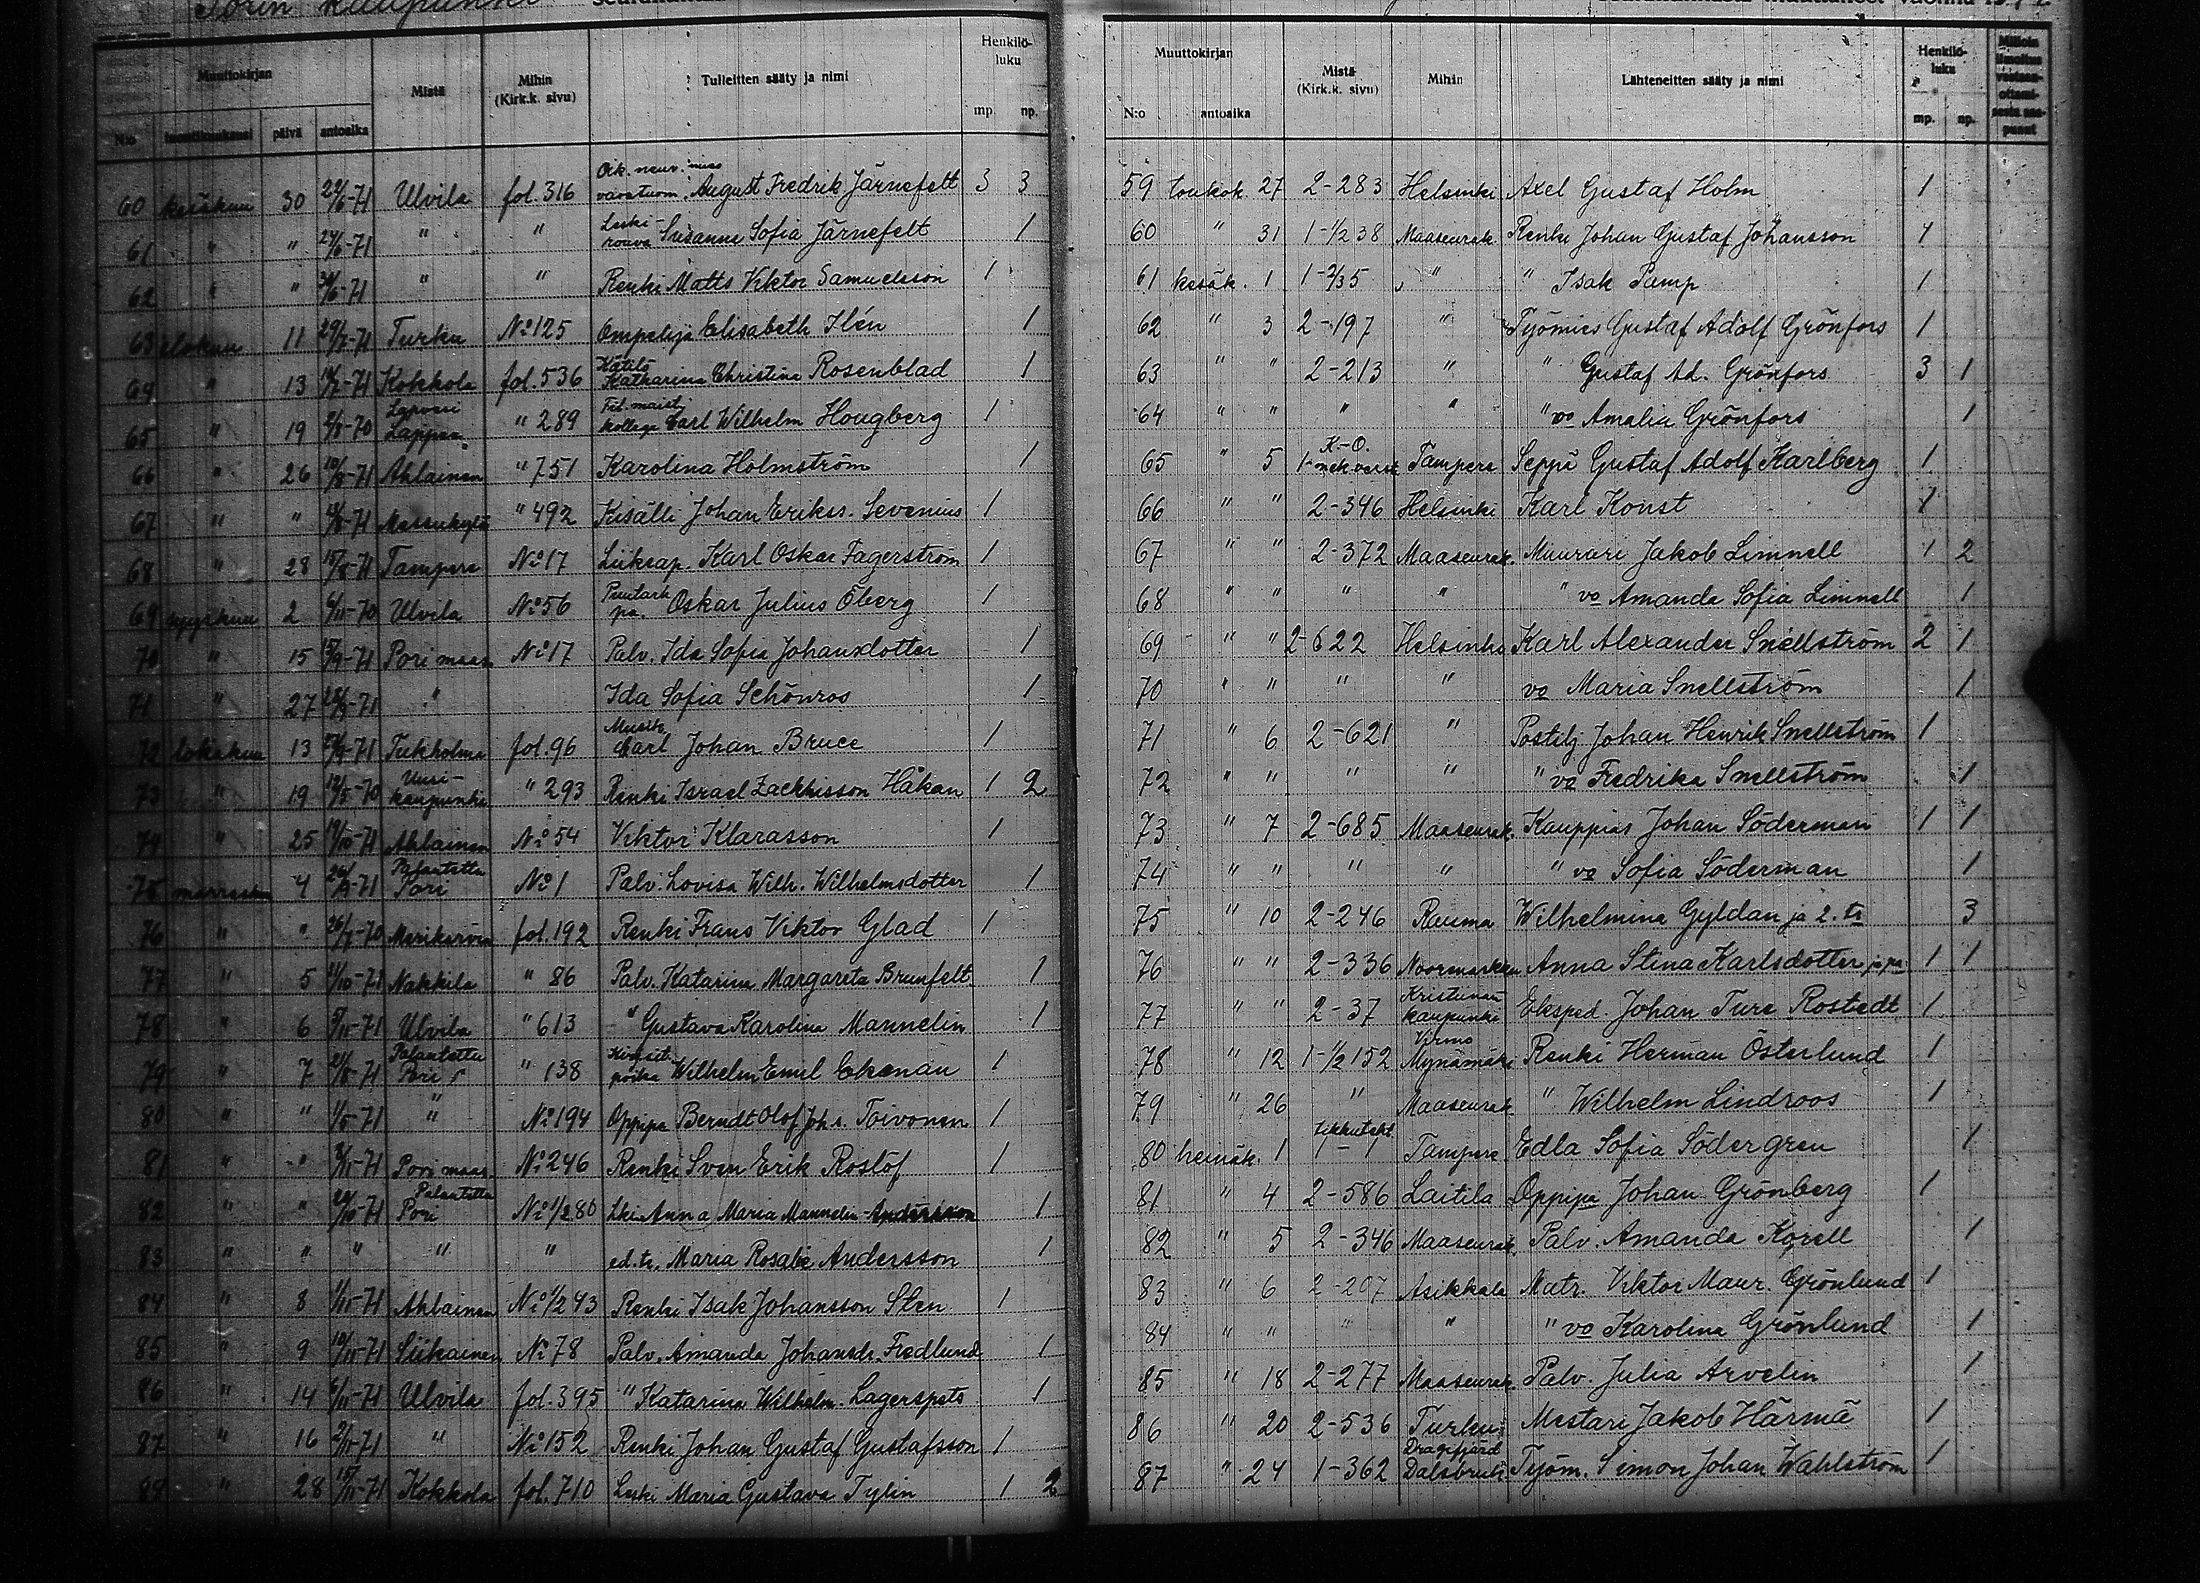 Porin kaupunki
Muuttokirjan Mistä Mihin (Kirk.k. sivu) Tulleitten sääty ja nimi Henkilöluku
N:o päivä antoaika mp. np.
60 kesäkuu 30 22/6-71 Ulvila fol. 316 August Fredrik Järnefelt 3 3
61 " " 24/6-71 " " Leski-rouva Susanna Sofia Järnefelt 1
62 " " 30/6-71 " " Renki Matts Viktor Samuelsson 1
63 elokuu 11 29/7-71 Turku No 125 Ompelija Elisabeth Ilén 1
64 " 13 Kokkola fol. 536 Kätilö Katharina Christina Rosenblad 1
65 " 19 Lapveri Lappee " 289 Fil. maist. kollega Carl Wilhelm Hougberg 1
66 " 26 10/8-71 Ahlainen " 751 Karolina Holmström 1
67 " " Messukylä " 492 Kisälli Johan Erikss. Sevenius 1
68 " 28 15/8-71 Tampere No 17 Liiksap. Karl Oskar Fagerström 1
69 syyskuu 2 6/11-70 Ulvila No 56 Puutarh Oskar Julius Öberg 1
70 " 15 15/9-71 Pori maas. No 17 Palv. Ida Sofia Johansdotter 1
71 " 27 " Ida Sofia Schönros 1
72 lokakuu 13 Tukholma fol. 96 Musik. Carl Johan Bruce 1
73 " 19 Uusi-kaupunki " 293 Renki Israel Zackrisson Håkan 1 2
74 " 25 19/10-71 Ahlainen No 54 Viktor Klarasson 1
75 marraskuu 4 Palautettu Pori No 1 Palv. Lovisa Wilh. Wilhelmsdotter 1
76 " " Merikarvia fol. 192 Renki Frans Viktor Glad 1
77 " 5 Nakkila " 86 Palv. Katarina Margareta Brunfelt 1
78 " 6 Ulvila " 613 " Gustava Karolina Mannelin 1
79 " 7 Palautettu Pori " 138 poika Wilhelm Emil Ekenau 1
80 " " " No 194 Oppipa Berndt Olof Joh. s. Toivonen 1
81 " " Pori maas. No 246 Renki Sven Erik Rostöf 1
82 " " Palautettu Pori No 1/280 Lski Anna Maria Mannelin Andersson 1
83 " " " " " ed. tr. Maria Rosalie Andersson 1
84 " 8 Ahlainen No 1/243 Renki Isak Johansson Sten 1
85 " 9 Siikainen No 78 Palv. Amanda Johansdr. Fredlund 1
86 " 14 Ulvila fol. 395 " Katarina Wilhelm. Lagerspets 1
87 " 16 " No 152 Renki Johan Gustaf Gustafsson 1
89 " 28 Kokkola fol. 710 Leski Maria Gustava Tylin 1 2
Muuttokirjan Mistä (Kirk.k. sivu) Mihin Lähteneitten sääty ja nimi Henkilöluku
N:o antoaika mp. np.
59 toukok. 27 2-283 Helsinki Axel Gustaf Holm 1
60 " 31 1-1/2 38 Maaseurak. Renki Johan Gustaf Johansson 1
61 kesäk. 1 1-2/35 " " Isak Pamp 1
62 " 3 2-197 " Työmies Gustaf Adolf Grönfors 1
63 " " 2-213 " " Gustaf Ad. Grönfors 3 1
64 " " " " " vo Amalia Grönfors 1
65 " 5 Tampere Seppä Gustaf Adolf Karlberg 1
66 " " 2-346 Helsinki Karl Konst 1
67 " " 2-372 Maaseurak. Muurari Jakob Limnell 1 2
68 " " " " " vo Amanda Sofia Limnell 1
69 " " 2-622 Helsinki Karl Alexander Snellström 2 1
70 " " " " vo Maria Snellström 1
71 " 6 2-621 " Postilj Johan Henrik Snellström 1
72 " " " " " vo Fredrika Snellström 1
73 " 7 2-685 Maaseurak. Kauppias Johan Söderman 1 1
74 " " " " " vo Sofia Söderman 1
75 " 10 2-246 Rauma Wilhelmina Gyldan ja 2. tr 3
76 " " 2-336 Noormarkku Anna Stina Karlsdotter ja pa 1 1
77 " " 2-37 Kristiinankaupunki Eksped. Johan Ture Rostedt 1
78 " 12 1-1/2 152 Virmo Mynämäki Renki Herman Österlund 1
79 " 26 " Maaseurak " Wilhelm Lindroos 1
80 heinäk. 1 Tampere Edla Sofia Södergren 1
81 " 4 2-586 Laitila Oppipa Johan Grönberg 1
82 " 5 2-346 Maaseurak. Palv. Amanda Korell 1
83 " 6 2-207 Asikkala Matr. Viktor Maur. Grönlund 1
84 " " " " " vo Karolina Grönlund 1
85 " 18 2-277 Maaseurak. Palv. Julia Arvelin 1
86 " 20 2-536 Turku Mestari Jakob Härmä 1
87 " 24 1-362 Dragsfjärd Dalsbruk Työm. Simon Johan Wahlström 1